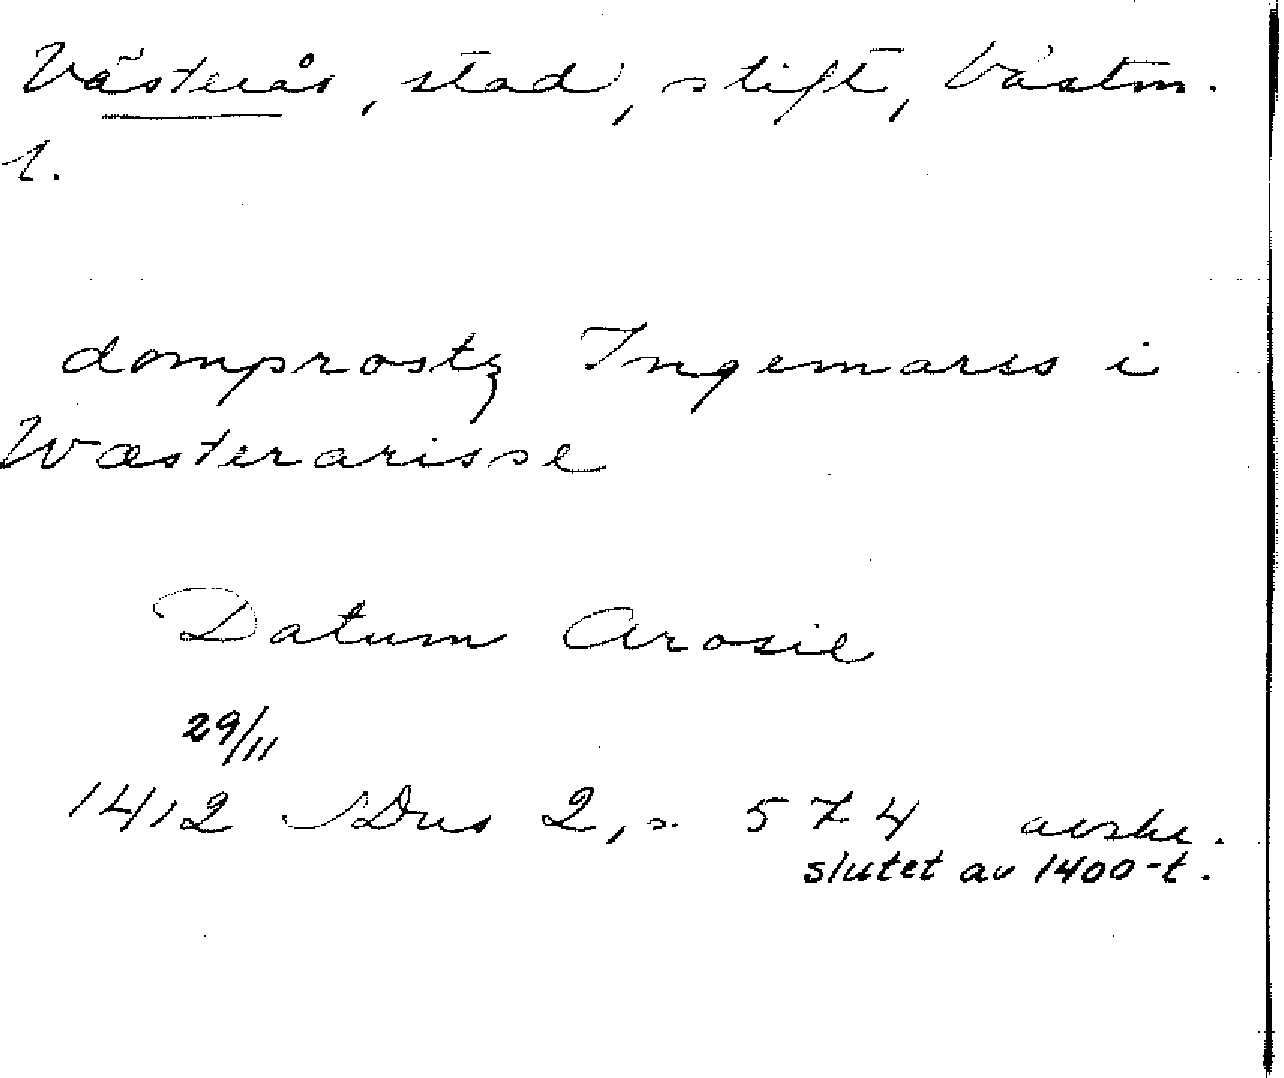 Västerås, stad, stift, Västm.
l.
domprostz Ingemarss i
Wæsterarisse
Datum Arosie
29/11
1412 SDns 2, s. 574 avskr.
slutet av 1400-t.